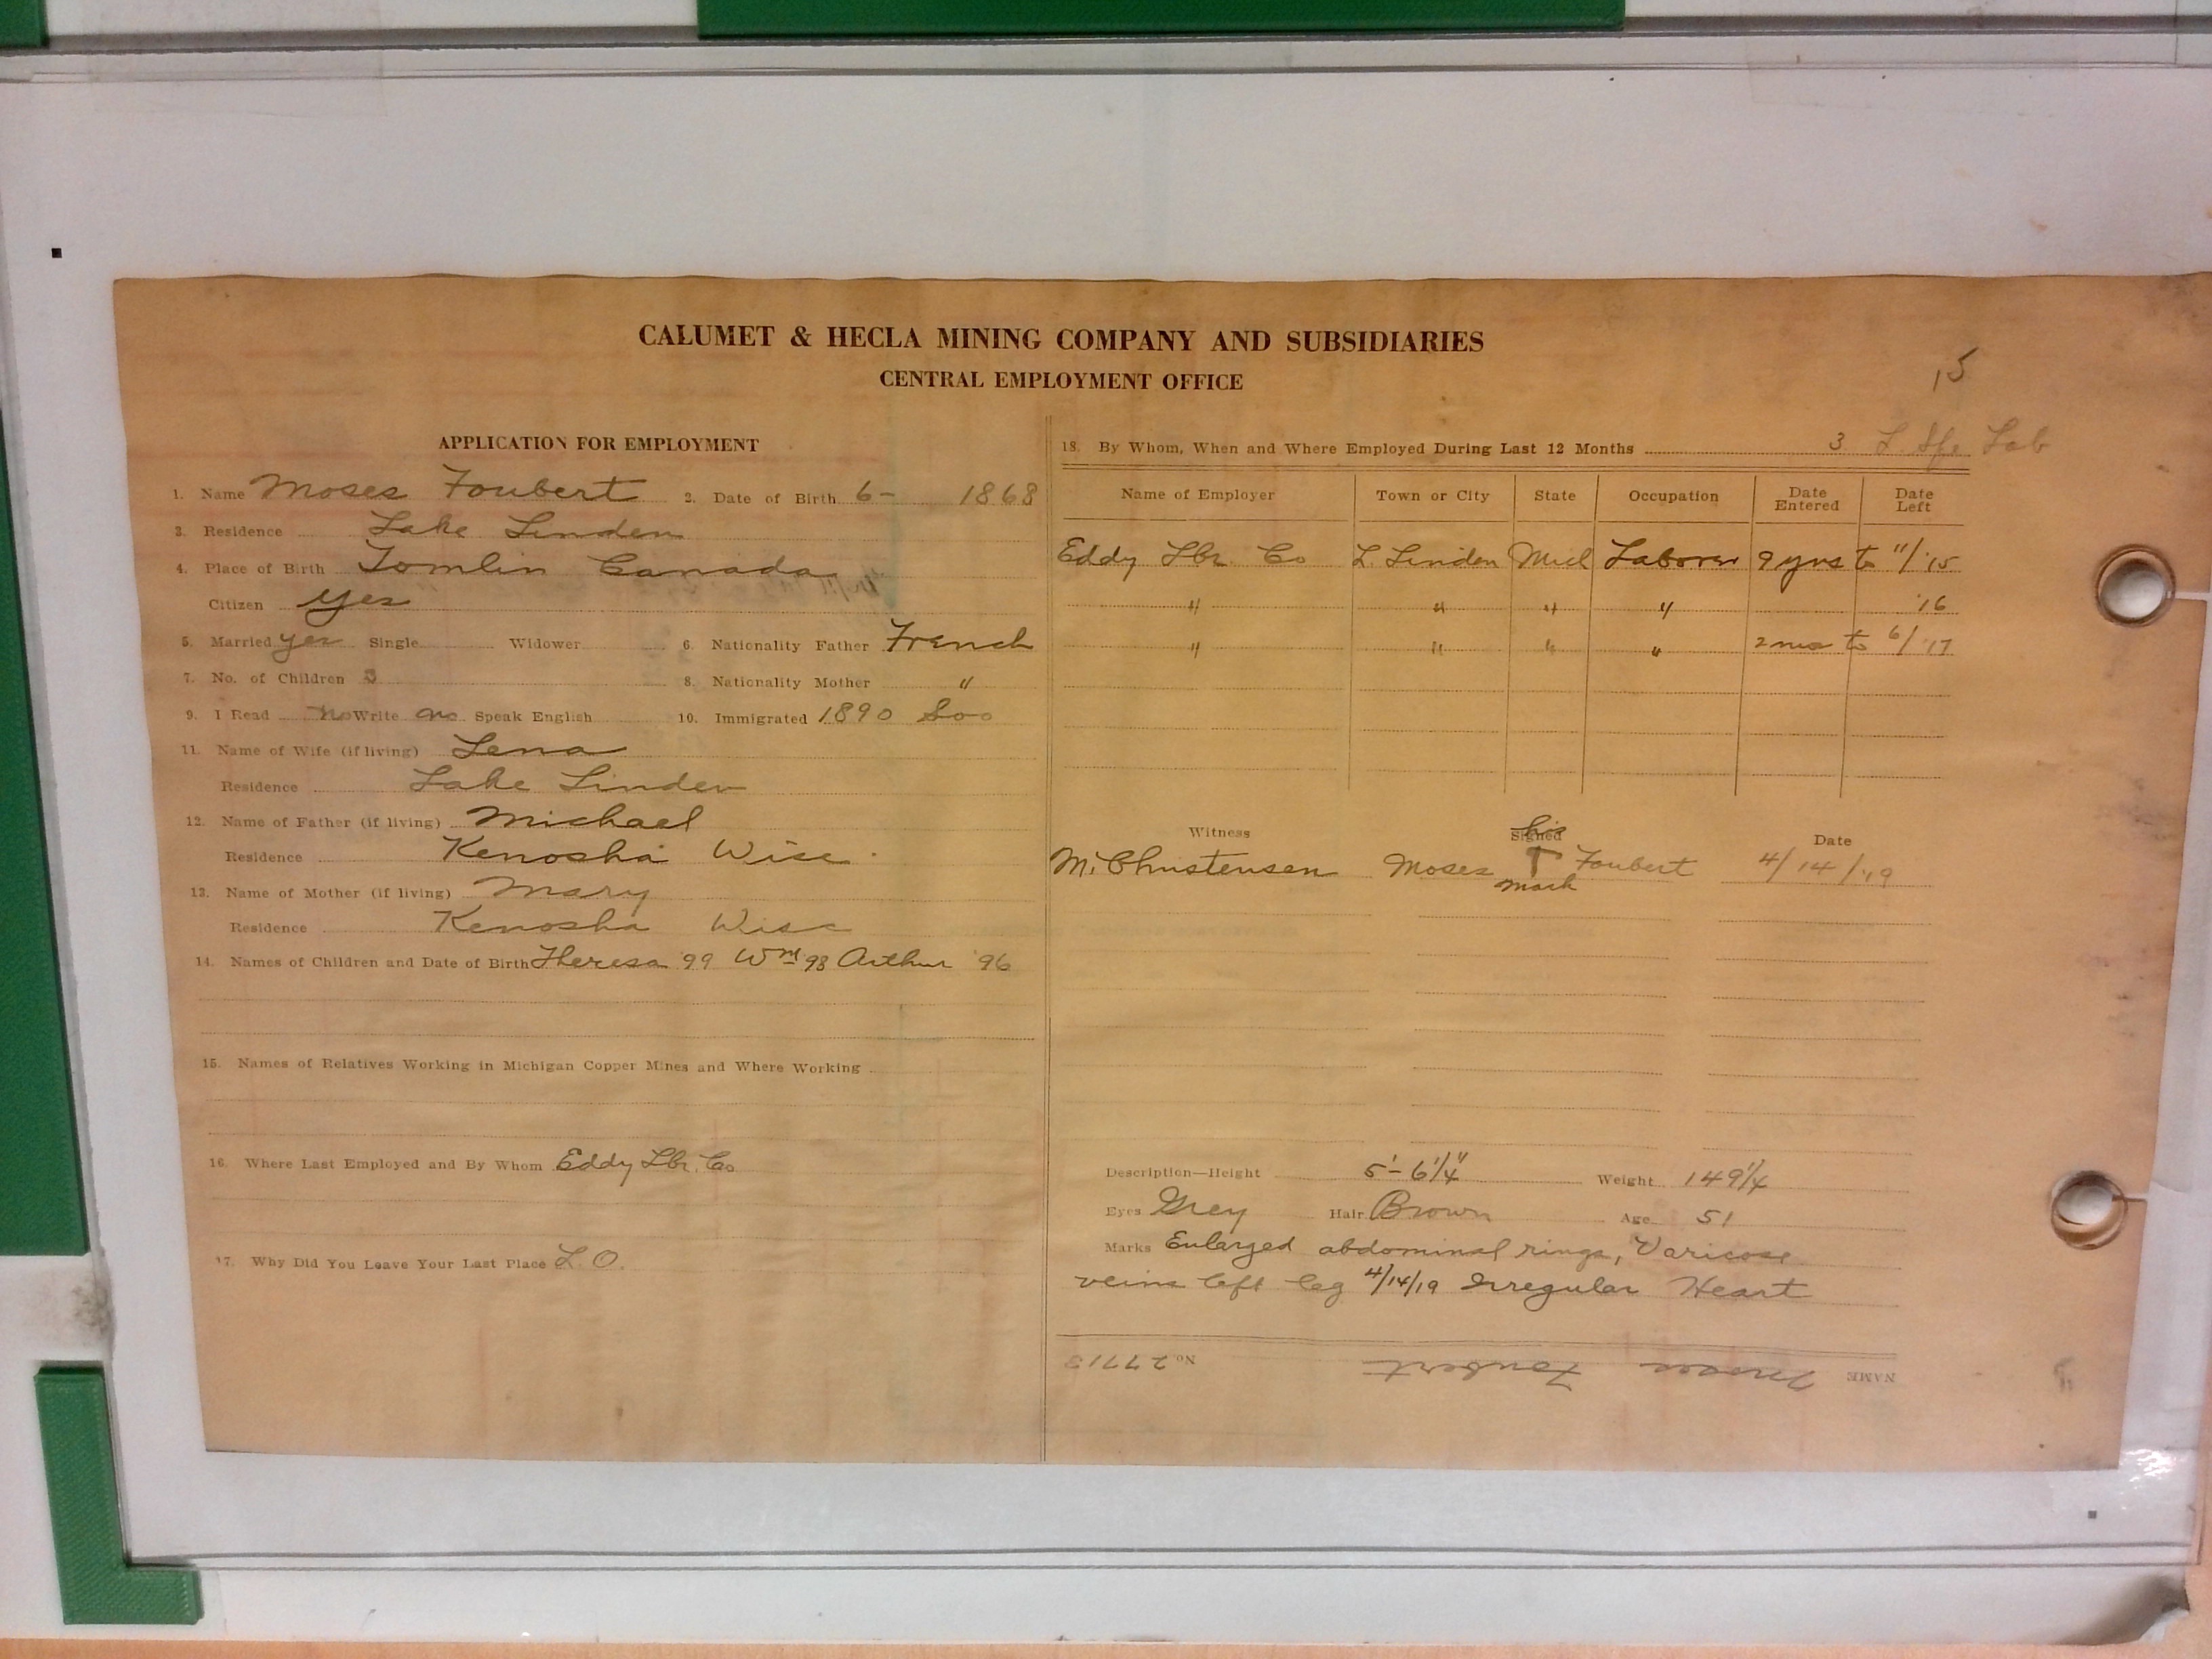 CALUMET & HECLA MINING COMPANY AND SUBSIDIARIES
CENTRAL EMPLOYMENT OFFICE
15
APPLICATION FOR EMPLOYMENT
1. Name Moses Foubert 2. Date of Birth 6- 1868
3. Residence Lake Linden
4. Place of Birth Tomlin Canada
Citizen yes
5. Married yes Single Widower 6. Nationality Father French
7. No. of Children 3 8. Nationality Mother "
9. I Read no Write no Speak English 10. Immigrated 1890 Soo
11. Name of Wife (if living) Lena
Residence Lake Linden
12. Name of Father (if living) Michael
Residence Kenosha Wisc.
13. Name of Mother (if living) Mary
Residence Kenosha Wisc
14. Names of Children and Date of Birth Theresa 99 Wm 98 Arthur '96
15. Names of Relatives Working in Michigan Copper Mines and Where Working
16. Where Last Employed and By Whom Eddy Lbr. Co
17. Why Did You Leave Your Last Place L.O.
18. By Whom, When and Where Employed During Last 12 Months 3 Lab
Name of Employer Town or City State Occupation Date Entered Date Left
Eddy Lbr. Co L. Linden Mich Laborer 9 yrs to 11/'15
" " " " '16
" " " " 2 mos to 6/'17
Witness Signed Date
his
M. Christensen Moses Foubert 4/14/'19
mark
Description—Height 5'-6 1/4" Weight 149 1/4
Eyes Grey Hair Brown Age 51
Marks Enlarged abdominal rings, Varicose
veins left leg 4/14/19 Irregular Heart
NAME Moses Foubert No. 27713